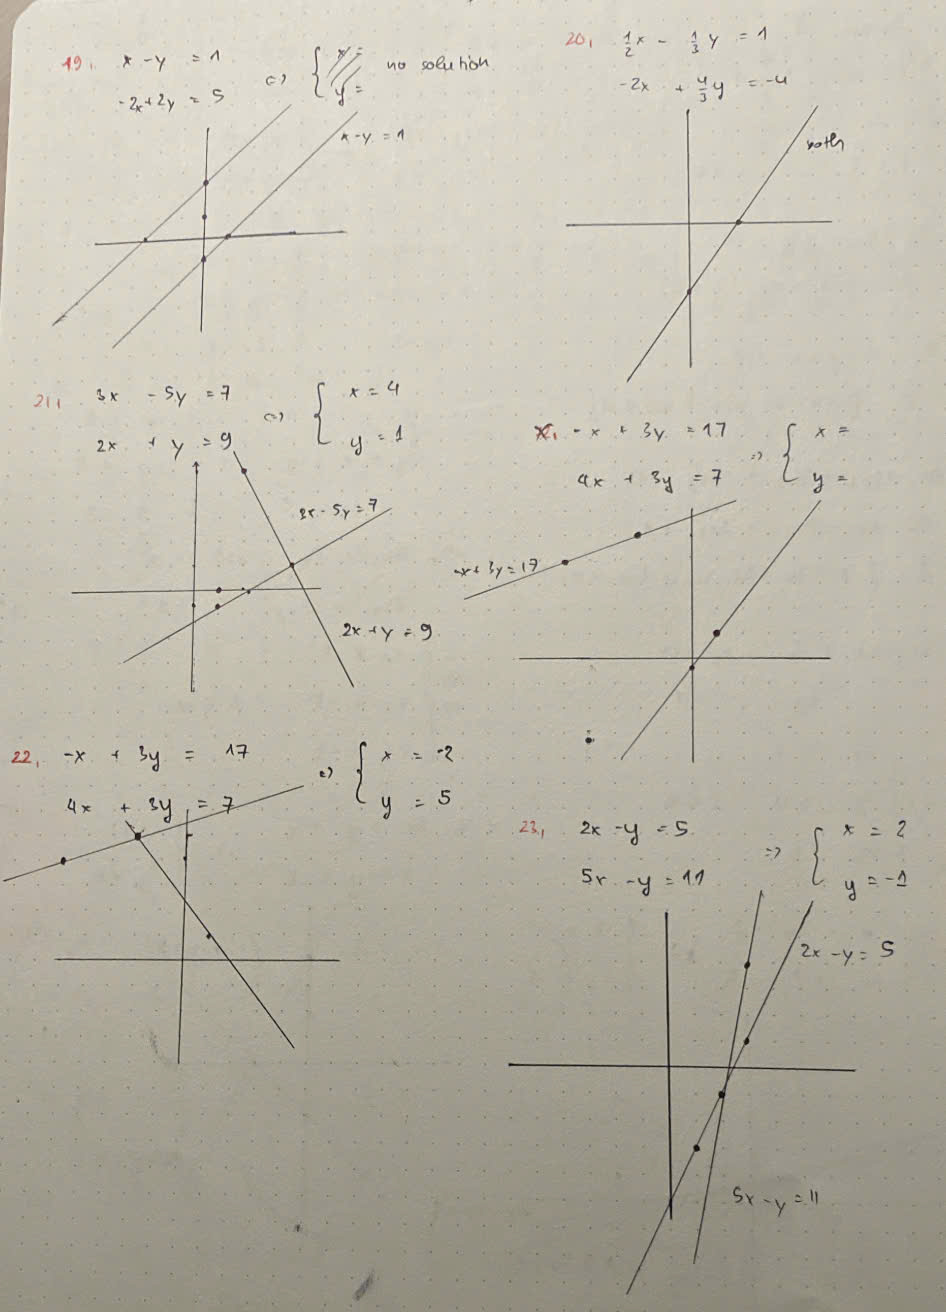 19. x - y = 1
-2x + 2y = 5
<=> { x =
y =
no solution
x - y = 1
20. 1/2 x - 1/3 y = 1
-2x + 4/3 y = -4
both
21. 3x - 5y = 7
2x + y = 9
<=> { x = 4
y = 1
3x - 5y = 7
2x + y = 9
-x + 3y = 17
4x + 3y = 7
=> { x =
y =
-x + 3y = 17
22. -x + 3y = 17
4x + 3y = 7
=> { x = -2
y = 5
23. 2x - y = 5
5x - y = 11
=> { x = 2
y = -1
2x - y = 5
5x - y = 11